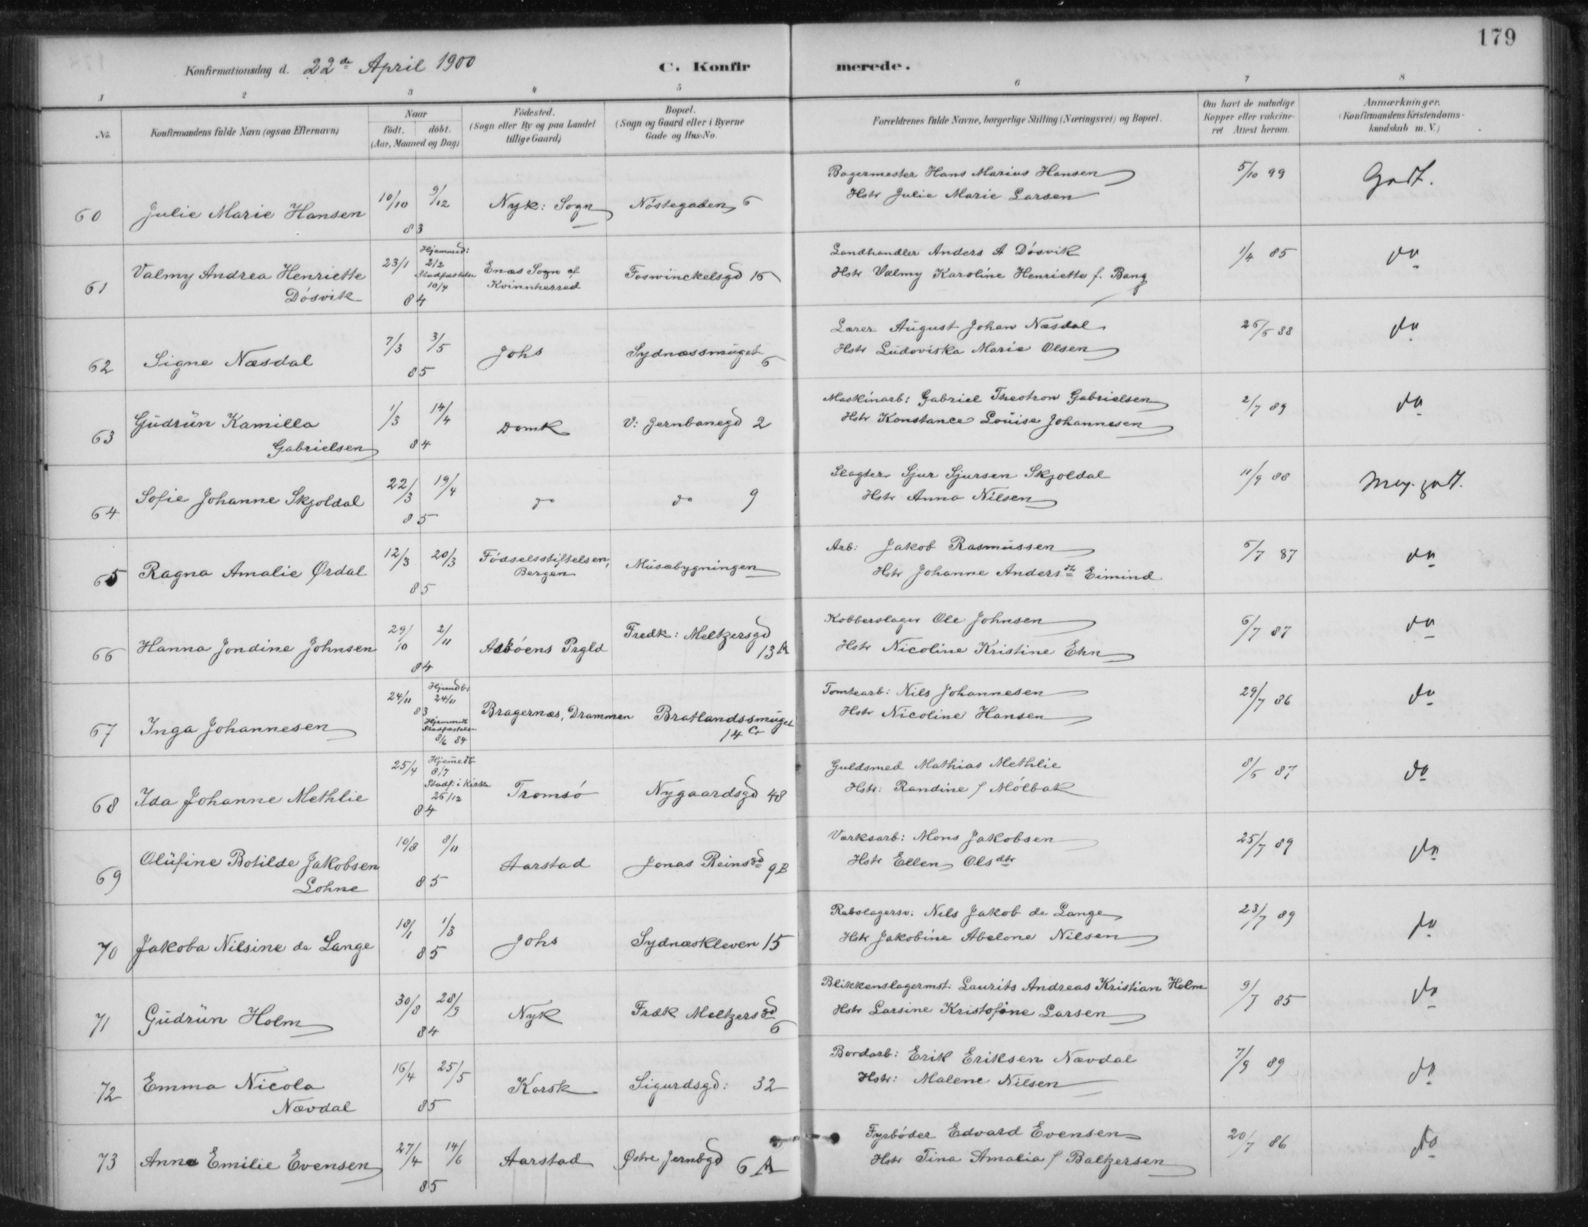 179
Konfirmationsdag d. 22de April 1900
C. Konfirmerede.
1 2 3 4 5 6 7 8
No.
Konfirmandens fulde Navn (ogsaa Efternavn)
Naar
født. døbt.
(Aar, Maaned og Dag)
Fødested.
(Sogn eller By og paa Landet
tillige Gaard)
Bopæl.
(Sogn og Gaard eller i Byerne
Gade og Hus-No.
Forældrenes fulde Navne, borgerlige Stilling (Næringsvei) og Bopæl.
Om havt de naturlige
Kopper eller vaccineret
Attest herom.
Anmærkninger.
(Konfirmandens Kristendomskundskab
m. V.)
60 Julie Marie Hansen 10/10 9/12 83 Nyk: Sogn Nöstegaden 6
Bagermester Hans Marius Hansen
Hstr Julie Marie Larsen
5/10 99 Godt.
61 Valmy Andrea Henriette
Døsvik
23/1 84 Hjemmed: 2/2 Stadfæstelse 10/4
Enæs Sogn af
Kvinnherred
Foswinckelsgd 15
Landhandler Anders A Døsvik
Hstr Valmy Karoline Henriette f. Bang
1/4 85 do
62 Signe Næsdal 7/3 3/5 85 Johs Sydnæssmuget 6
Lærer August Johan Næsdal
Hstr Ludoviska Marie Olsen
26/5 88 do
63 Gudrun Kamilla
Gabrielsen
1/3 14/4 84 Domk V: Jernbanegd 2
Maskinarb: Gabriel Theotron Gabrielsen
Hstr Konstance Louise Johannesen
2/7 89 do
64 Sofie Johanne Skjoldal 22/3 19/4 85 do do 9
Slagter Sjur Sjursen Skjoldal
Hstr Anna Nilsen
11/9 88 Meg. godt.
65 Ragna Amalie Ørdal 12/3 20/3 85
Födselsstiftelsen,
Bergen
Musæbygningen
Arb: Jakob Rasmussen
Hstr Johanne Andersdtr Eimind
5/7 87 do
66 Hanna Jondine Johnsen 29/10 2/11 84 Askøens Prgld
Fredk: Meltzersgd
13A
Kobberslager Ole Johnsen
Hstr Nicoline Kristine Ehn
6/7 87 do
67 Inga Johannesen 24/11 83 Hjemdbt 24/11
Bragernæs, Drammen Bratlandssmuget
14 c
Tomtearb: Nils Johannesen
Hstr Nicoline Hansen
29/7 86 do
68 Ida Johanne Methlie 25/4 84 8/7
Stadf: i Kirke
26/12
Tromsö Nygaardsgd 48
Guldsmed Mathias Methlie
Hstr: Randine f Mölbak
8/5 87 do
69 Olufine Botilde Jakobsen
Lohne
10/8 8/11 85 Aarstad Jonas Reinsgd 9B
Værksarb: Mons Jakobsen
Hstr Ellen Olsdtr
25/7 89 do
70 Jakoba Nilsine de Lange 18/1 1/3 85 Johs Sydnæskleven 15
Rebslagersv: Nils Jakob de Lange
Hstr Jakobine Abelone Nilsen
23/7 89 do
71 Gudrun Holm 30/8 28/9 84 Nyk Fredk Meltzersgd 6
Blikkenslagermst. Laurits Andreas Kristian Holm
Hstr Larsine Kristofine Larsen
9/7 85 do
72 Emma Nicola
Nævdal
16/4 25/5 85 Korsk Sigurdsgd: 32
Bordarb: Erik Eriksen Nævdal
Hstr: Malene Nilsen
7/9 89 do
73 Anna Emilie Evensen 27/4 14/6 85 Aarstad Østre Jernbgd 6A
Fyrbøder Edvard Evensen
Hstr Tina Amalia f Baltzersen
20/7 86 do